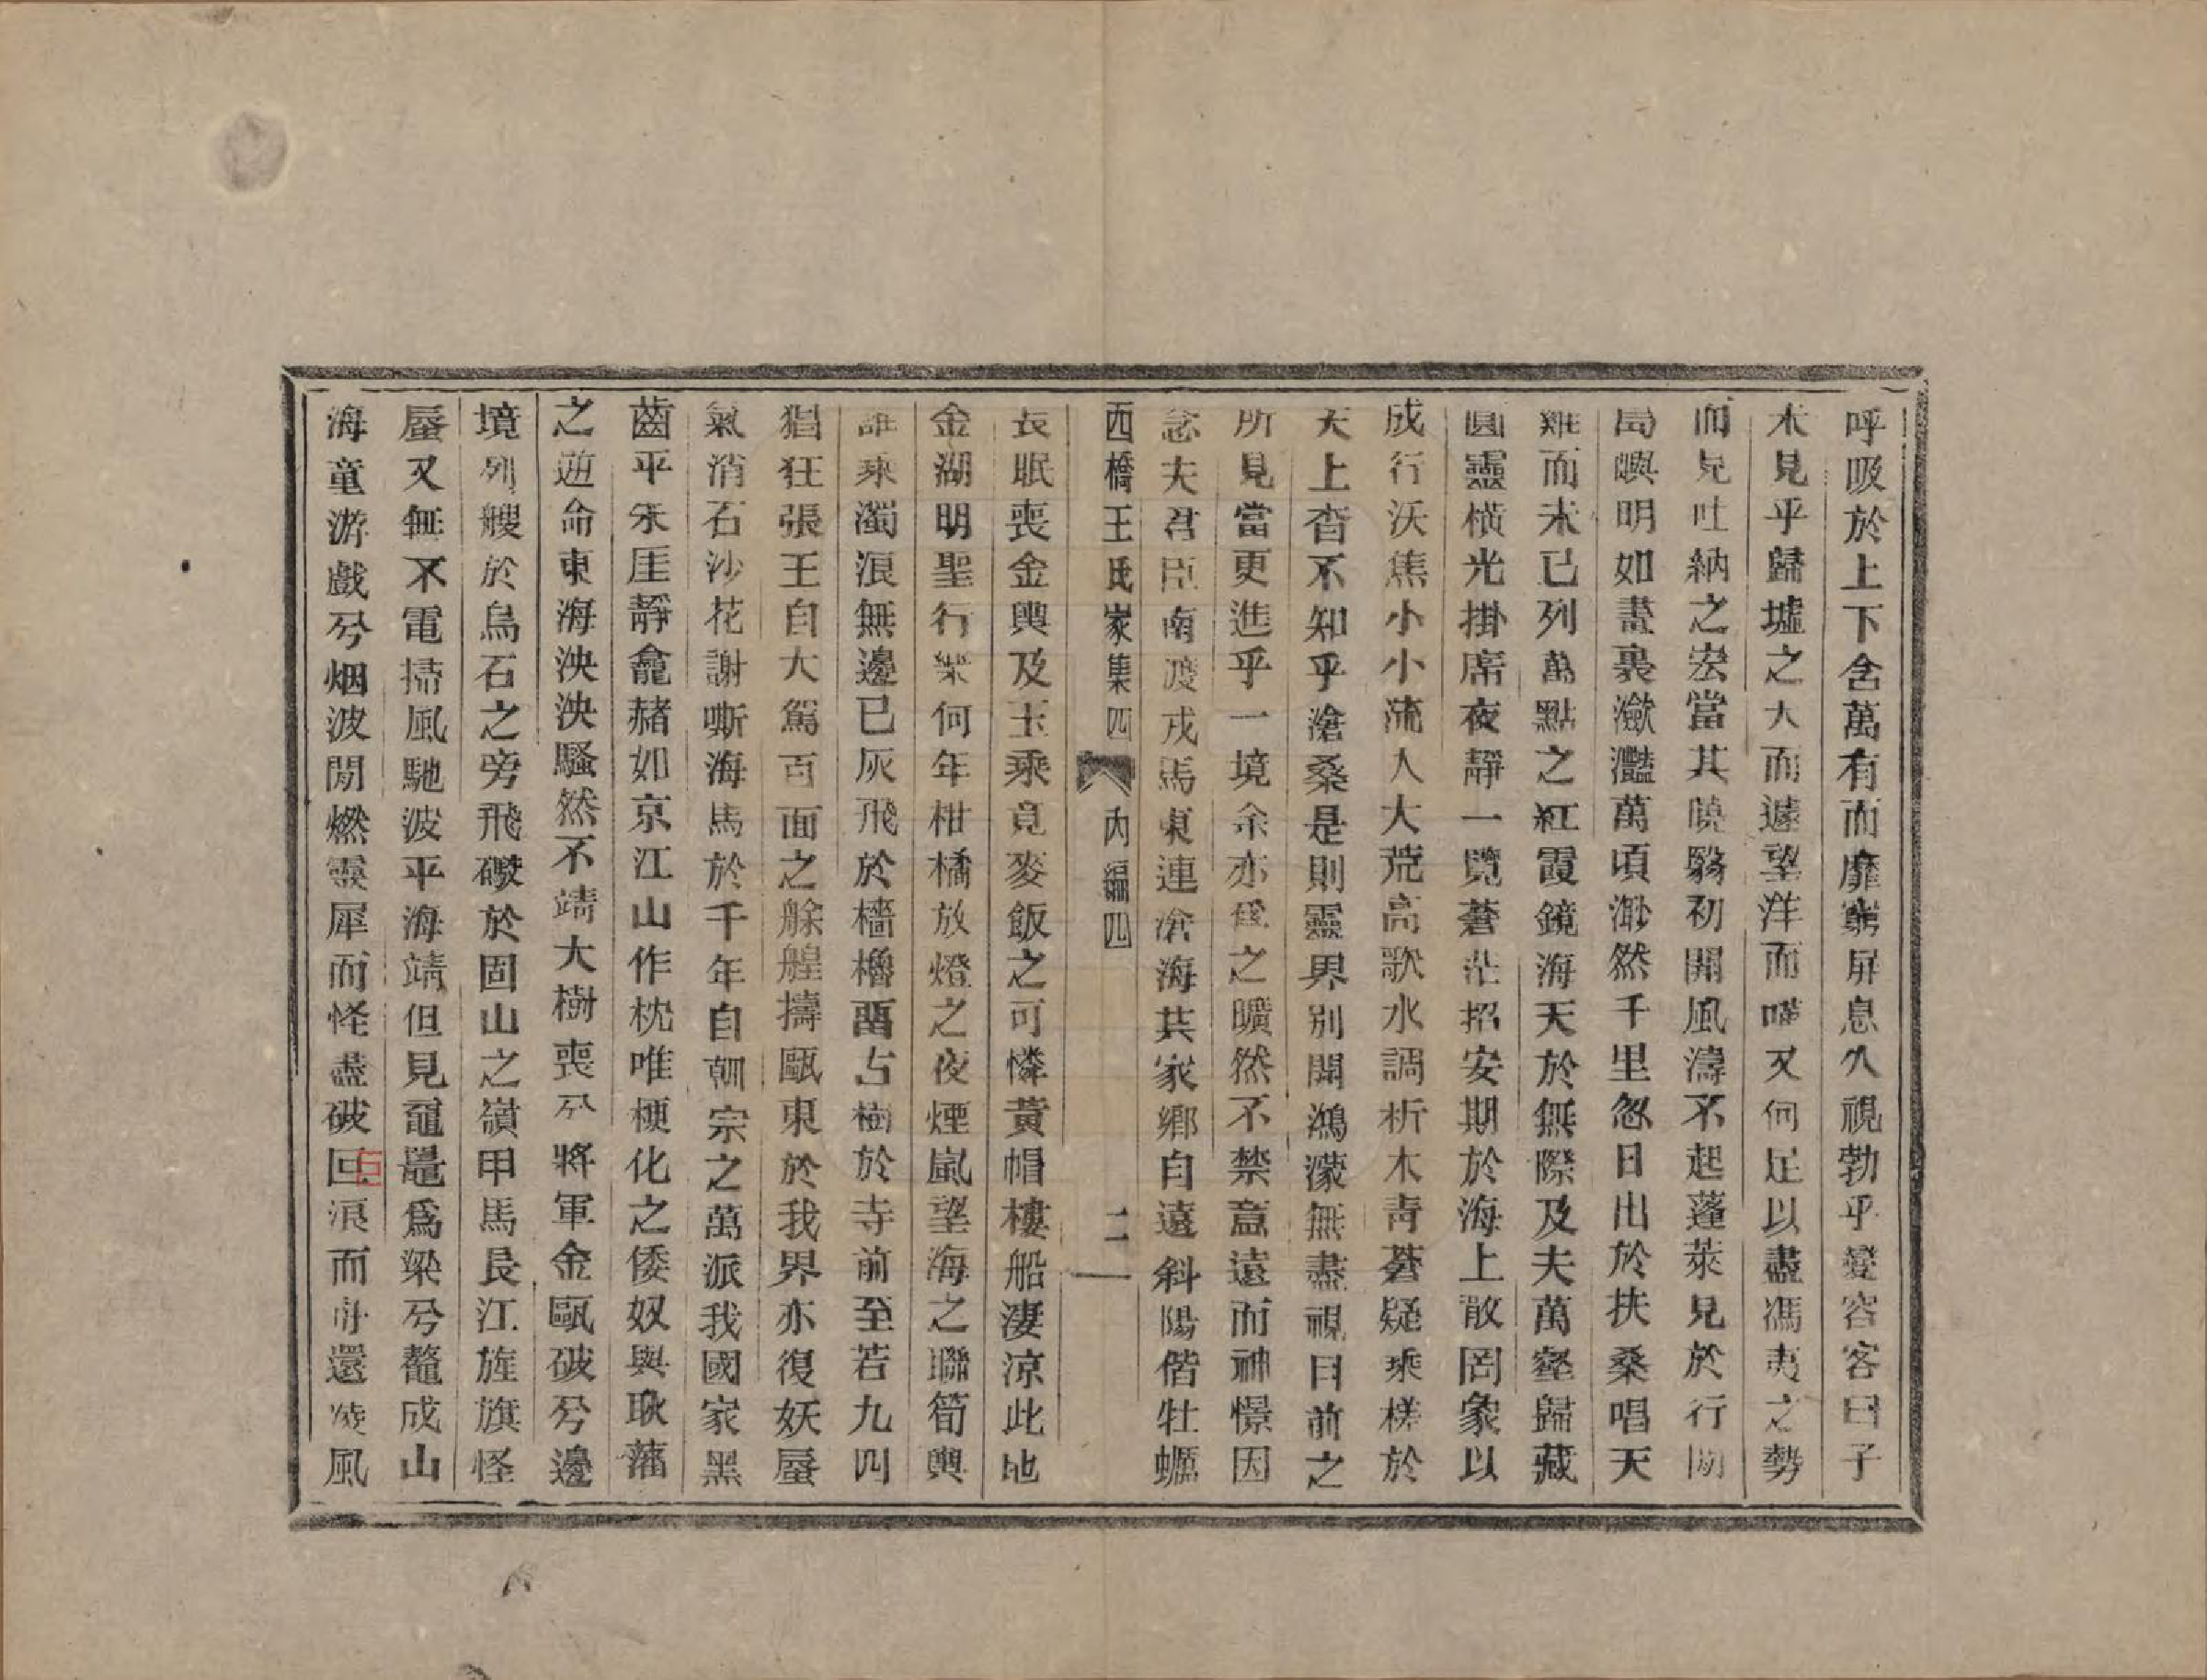 呼吸於上下含萬有而靡窮屏息久視勃乎變容客曰子
未見乎歸墟之大而遽望洋而嘆又何足以盡馮夷之勢
而見吐納之宏當其曉翳初開風濤不起蓬萊見於行間
島嶼明如畫裏瀲灩萬頃渺然千里忽日出於扶桑唱天
雞而未已列萬點之紅霞鏡海天於無際及夫萬壑歸藏
圓靈橫光掛席夜靜一覽蒼茫招安期於海上散罔象以
成行沃焦小小流人大荒高歌水調析木青蒼疑乘槎於
天上杳不知乎滄桑是則靈界別開鴻濛無盡視目前之
所見當更進乎一境余亦為之曠然不禁意遠而神憬因
念夫君臣南渡戎馬東連滄海其家鄉自遠斜陽偕牡蠣
西橋王氏家集四 內編四 二
長眠喪金輿及玉乘竟麥飯之可憐黃帽樓船淒涼此地
金湖明聖行樂何年柑橘放燈之夜煙嵐望海之聯筍輿
誰乘濁浪無邊已灰飛於檣櫓罱占樹於寺前至若九四
猖狂張王自大駕百面之艅艎擣甌東於我界亦復妖蜃
氣消石沙花謝嘶海馬於千年自朝宗之萬派我國家黑
齒平氷厓靜龕赭如京江山作枕唯梗化之倭奴與耿藩
之逆命東海泱泱騷然不靖大樹喪兮將軍金甌破兮邊
境列艘於烏石之旁飛礮於固山之嶺甲馬長江旌旗怪
蜃又無不電掃風馳波平海靖但見黿鼉爲梁兮鼇成山
海童游戲兮烟波閒燃靈犀而怪盡破回浪而舟還凌風